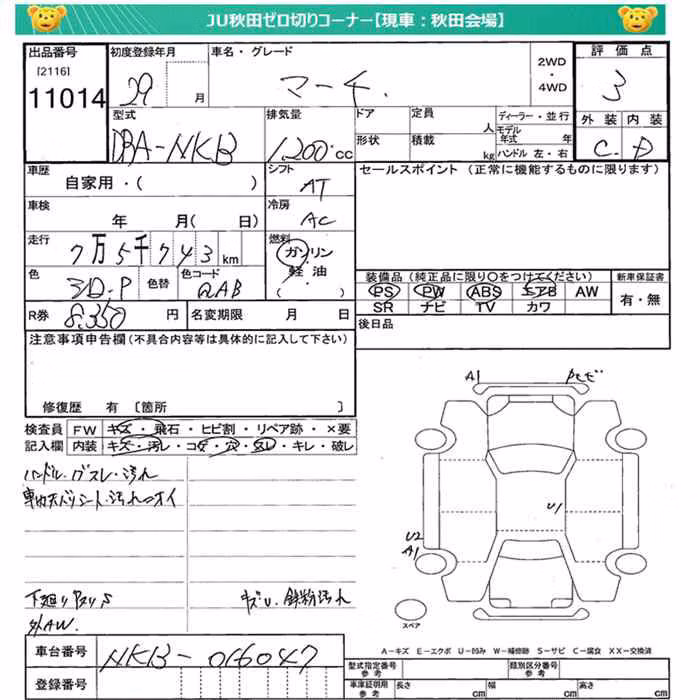 JU秋田ゼロ切りコーナー【現車：秋田会場】
出品番号 初度登録年月 車名・グレード 評価点
[2116]
11014
29 月 マーチ. 2WD・4WD 3
型式 排気量 ドア 定員 人 ディーラー・並行 外装 内装
DBA-NKB 1,200 cc 形状 積載 kg モデル年式 年 C. D
ハンドル 左・右
車歴 シフト セールスポイント (正常に機能するものに限ります)
自家用・( ) AT
車検 冷房
年 月( 日) AC
走行 燃料
7万5千743km ガソリン
軽油
( )
色 色替 色コード
QAB
装備品 (純正品に限り○をつけてください) 新車保証書
PS PW ABS エアB AW 有・無
SR ナビ TV カワ
R券 8,350 円 名変期限 月 日 後日品
注意事項申告欄(不具合内容等は具体的に記入して下さい)
修復歴 有 [箇所 ]
検査員 FW キズ・飛石・ヒビ割・リペア跡・×要
記入欄 内装 キズ・汚レ・コゲ・穴・スレ・キレ・破レ
ハンドル・汚れ
A1
U1
U2
A1
スペア
A-キズ E-エクボ U-凹み W-補修跡 S-サビ C-腐食 XX-交換済
下廻りサビ
キズU. 鉄粉汚れ
外AW.
車台番号 NKB-016047
登録番号
型式指定番号 参考 類別区分番号 参考
車庫証明用 参考 長さ cm 幅 cm 高さ cm